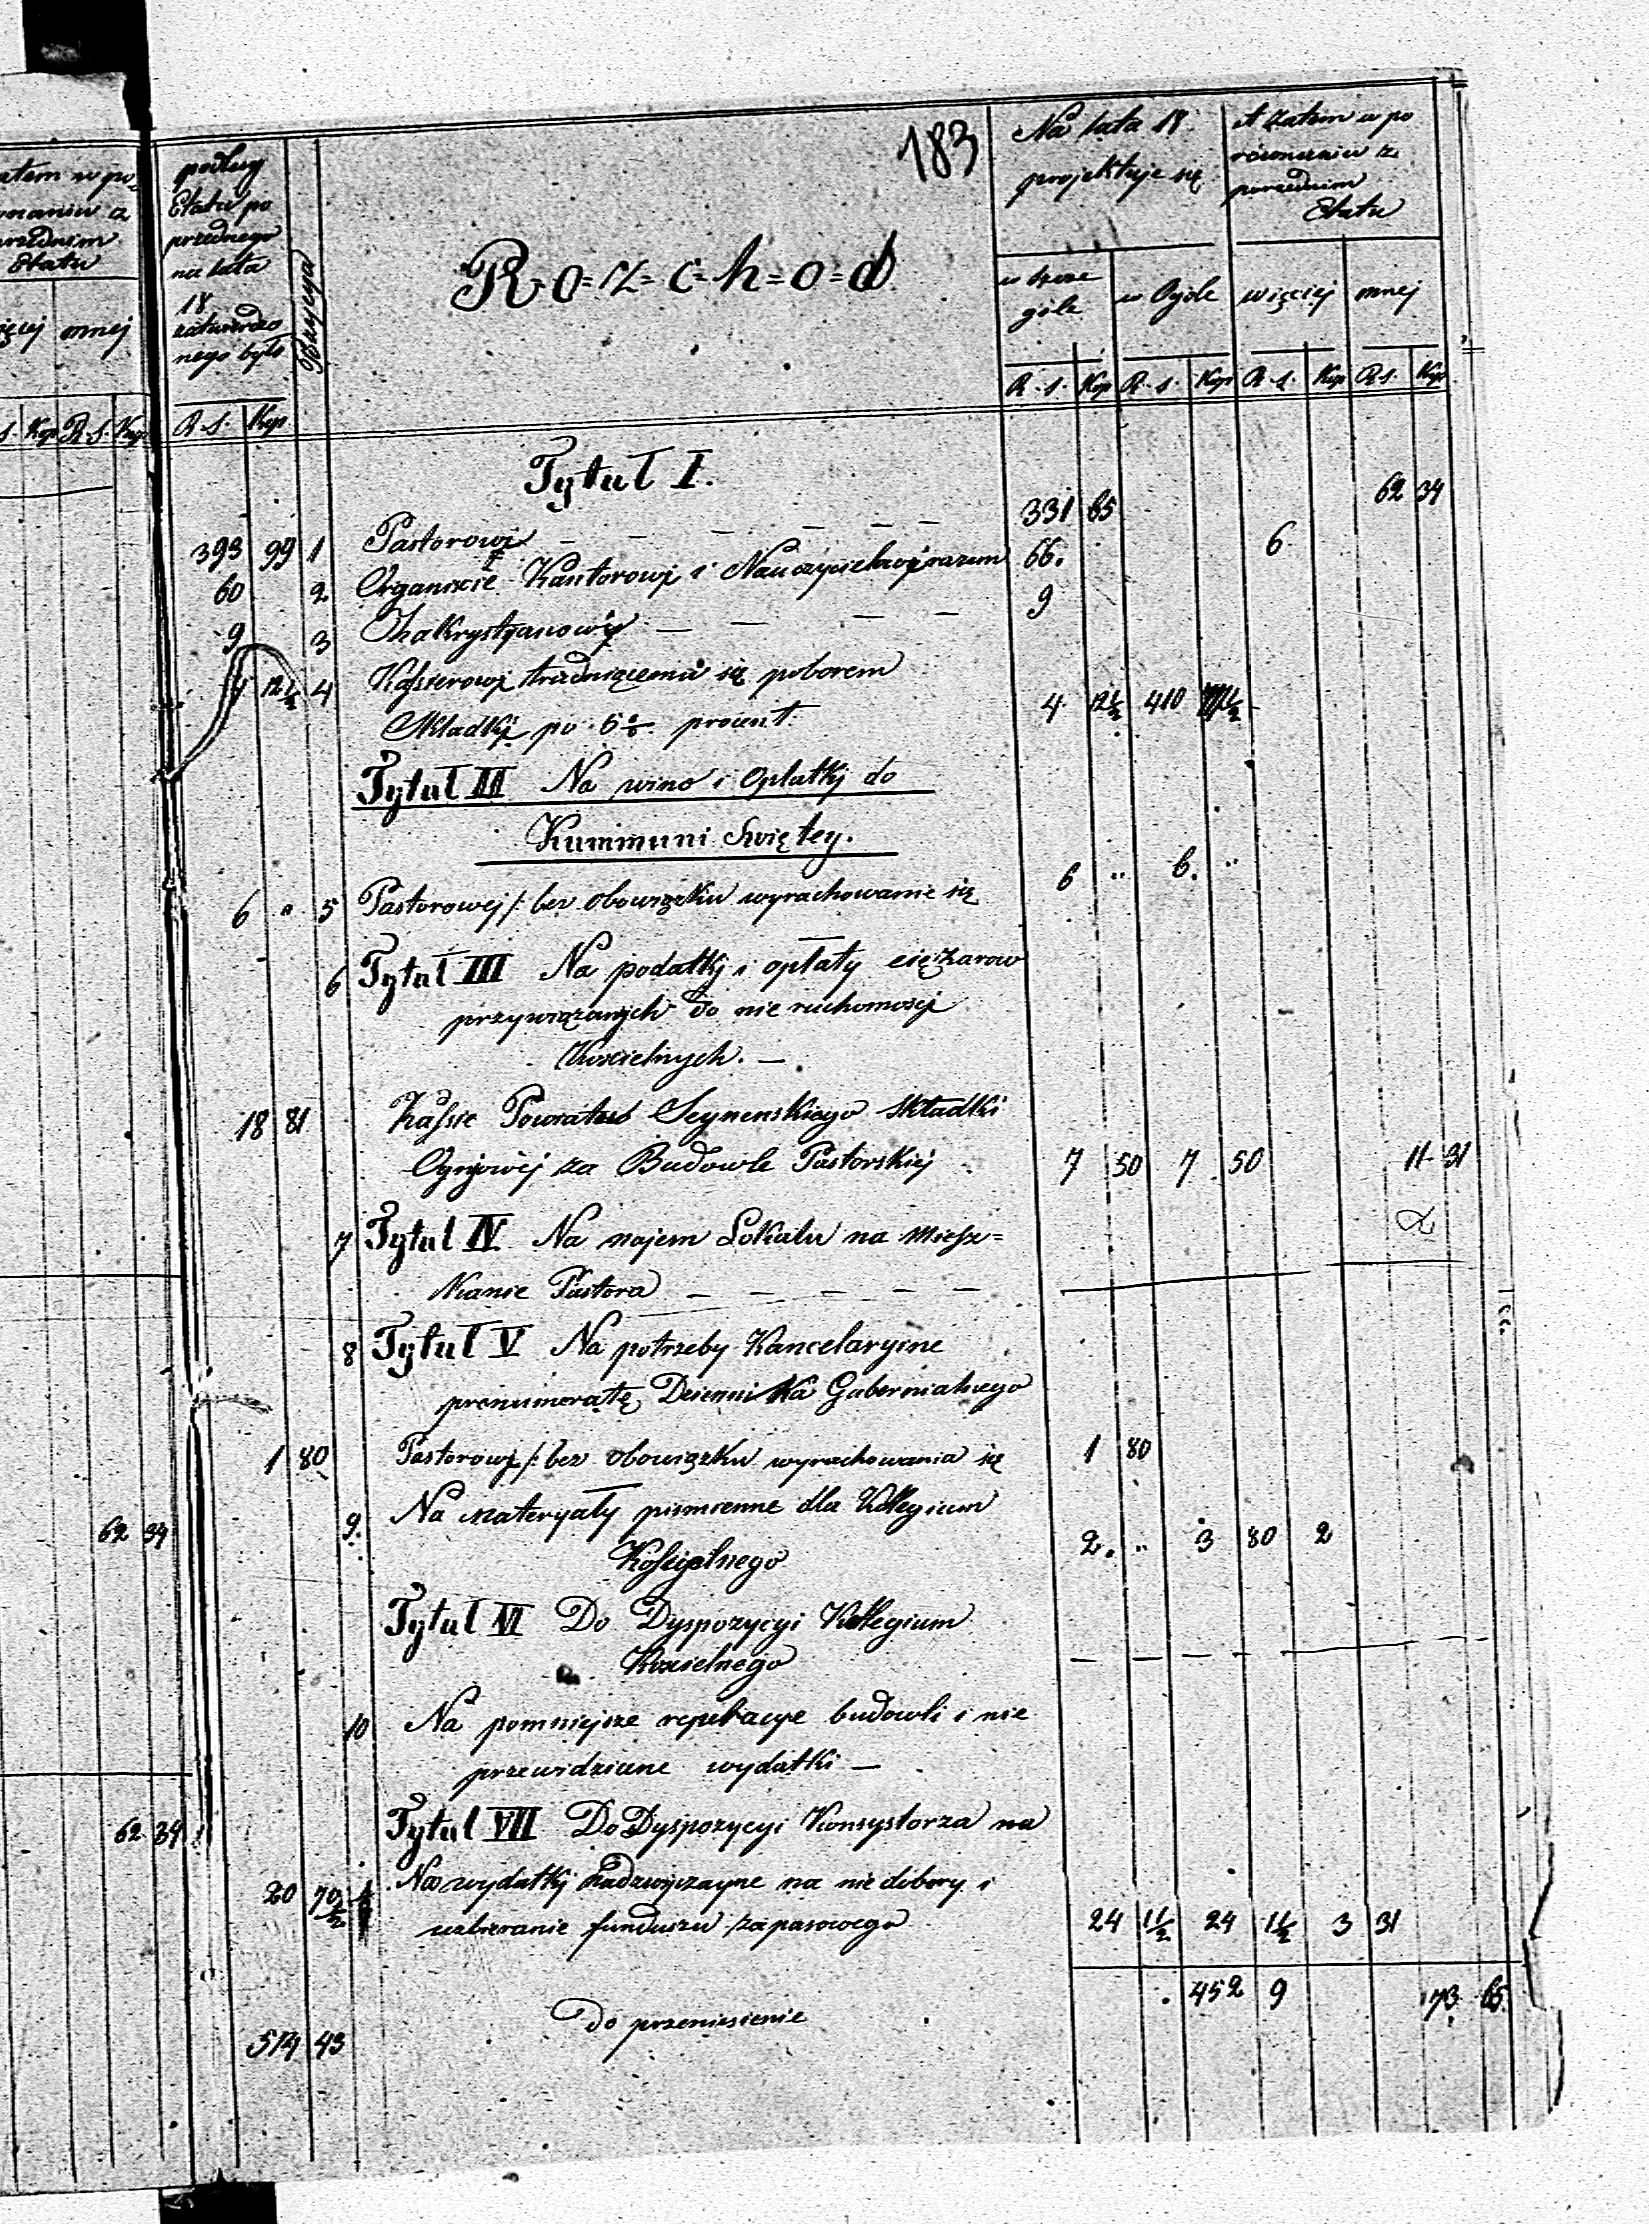 183
podług
Etatu po
przednego
na lata
18
zatwierdzo
nego było
R. s. Kop
Pozycya
R=o=z=c=h=o=d
Na lata 18
projektuje się
w szcze
góle
w Ogóle
A zatem w po
równaniu z
poprzednim
Etatu
więcéj mnej
R. s. Kop R. s. Kop R. s. Kop R. s. Kop
Tytuł I.
393 99 1 Pastorowi — — — — — 331 65 62 34
60 2 Organiście Kantorowi i Nauczycielowi razem 66. 6
9 3 Zakrystyanowi — — — 9
4 12½ 4 Kassierowi trudniącemu się poborem
Składki po 5% procent. 4 12½ 410
Tytuł II Na wino i Opłatki do
Kummuni Swiętey.
6 " 5 Pastorowej /: bez obowiązku wyrachowanie się 6 " 6. "
6 Tytuł III Na podatki i opłaty ciężarow
przywiązanych do nie ruchomości
Koscielnych. —
18 81 Kassie Powiatu Seynenskiego Składki
Ogniowej za Budowle Pastorskiej 7 50 7 50 11 31
7 Tytuł IV Na najem Lokalu na Miesz=
Kanie Pastora — — — — —
8 Tytuł V Na potrzeby Kancelaryine
prenumeratę Dziennika Gubernialnego
1 80 Pastorowi /: bez obowiązku wyrachowania się 1 80
9. Na materyały pismienne dla Kollegium
Kościelnego 2. " 3 80 2
Tytuł VI Do Dyspozycyi Kollegium
Koscielnego — — — —
10 Na pomniejsze reperacye budowli i nie
przewidziane wydatki —
Tytuł VII Do Dyspozycyi Konsystorza na
20 70½ Na wydatki Nadzwyczayne na nie dobory i
uzbieranie funduszu zapasowego 24 1½ 24 1½ 3 31
452 9 73 65.
514 43 Do przeniesienie
mnej
Kop R. s. Kop
62 34
62 34